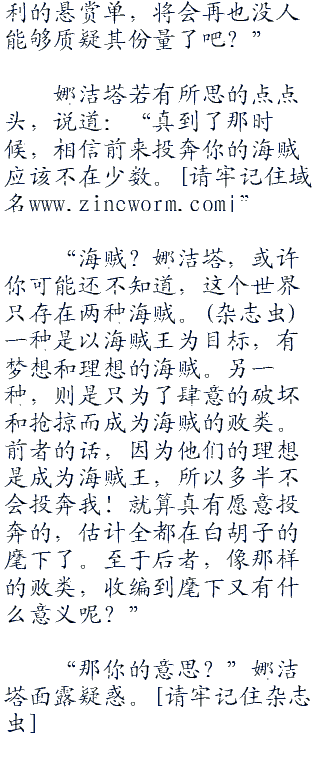 利的悬赏单，将会再也没人
能够质疑其份量了吧？”
娜洁塔若有所思的点点
头，说道：“真到了那时
候，相信前来投奔你的海贼
应该不在少数。[请牢记住域
名www.zincworm.com¡”
“海贼？娜洁塔，或许
你可能还不知道，这个世界
只存在两种海贼。(杂志虫)
一种是以海贼王为目标，有
梦想和理想的海贼。另一
种，则是只为了肆意的破坏
和抢掠而成为海贼的败类。
前者的话，因为他们的理想
是成为海贼王，所以多半不
会投奔我！就算真有愿意投
奔的，估计全都在白胡子的
麾下了。至于后者，像那样
的败类，收编到麾下又有什
么意义呢？”
“那你的意思？”娜洁
塔面露疑惑。[请牢记住杂志
虫]